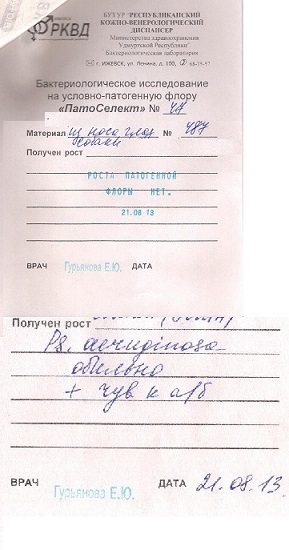 РКВД
БУЗУР "РЕСПУБЛИКАНСКИЙ
КОЖНО-ВЕНЕРОЛОГИЧЕСКИЙ
ДИСПАНСЕР
Министерства здравоохранения
Удмуртской Республики"
Бактериологическая лаборатория
г. ИЖЕВСК, ул. Ленина, д. 100,
Бактериологическое исследование
на условно-патогенную флору
«ПатоСелект» №
Материал из носа глаз № 487
собаки
Получен рост
РОСТА ПАТОГЕННОЙ
ФЛОРЫ НЕТ.
21.08 13
ВРАЧ Гурьянова Е.Ю. ДАТА
Получен рост
Ps. aeruginosa
обильно
+ чув к а/б
ВРАЧ Гурьянова Е.Ю. ДАТА 21.08.13